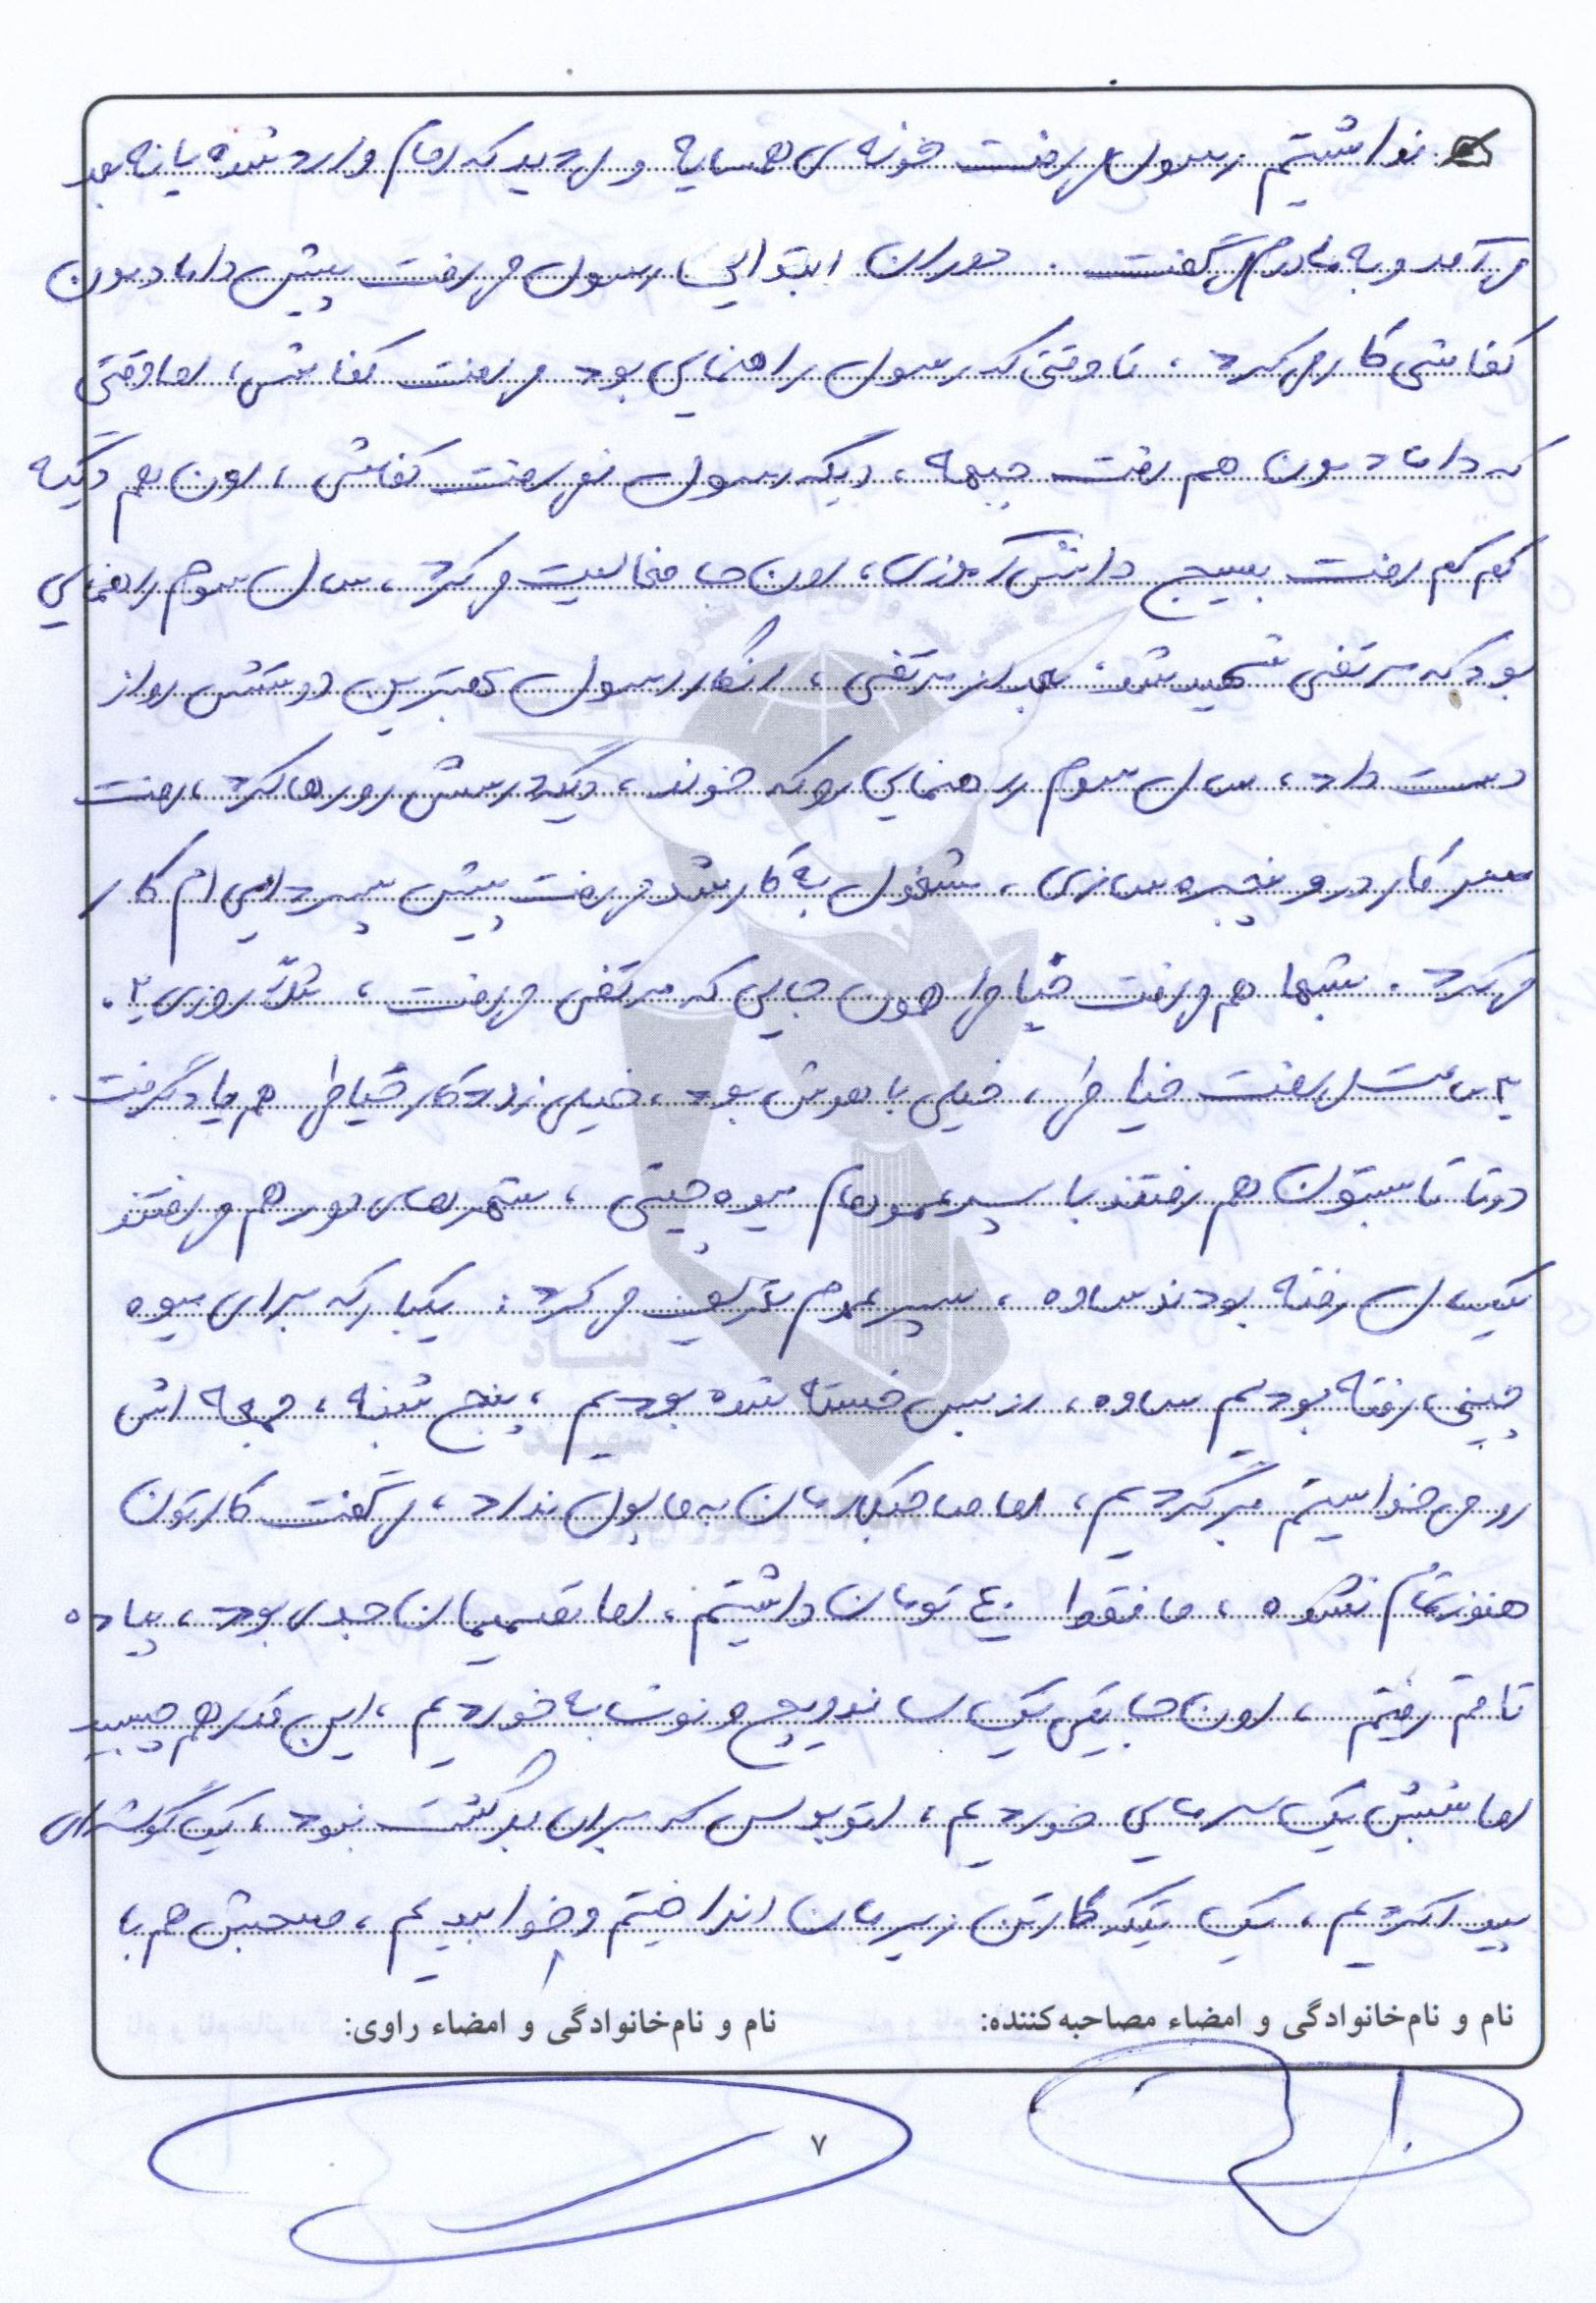 نداشتیم رسول می رفت خونه ی همسایه و می دید که امام وارد شده یا نه بعد
می آمد و به مادرم می گفت . دوران ابتدایی رسول می رفت پیش دامادمون
کفاشی کار می کرد ، تا وقتی که رسول راهنمایی بود می رفت کفاشی ، اما وقتی
که دامادمون هم رفت جبهه ، دیگه رسول نمی رفت کفاشی ، اون هم دیگه
کم کم رفت بسیج دانش آموزی ، اون جا فعالیت می کرد ، سال سوم راهنمایی
بود که مرتضی شهید شد . بعد از مرتضی ، انگار رسول بهترین دوستش رو از
دست داد ، سال سوم راهنمایی رو که خوند ، دیگه درسش رو رها کرد ، رفت
سر کار در و پنجره سازی ، مشغول به کار شد می رفت پیش پسردایی ام کار
می کرد . شبها هم می رفت خیاطی همون جایی که مرتضی می رفت ، مثلا روزی ۲ ،
۳ ساعت می رفت خیاطی ، خیلی باهوش بود ، خیلی زود کار خیاطی هم یاد گرفت .
دو تا تابستون هم رفتند با پسر عموهام میوه چینی ، شهرهای دور هم می رفتند
یکسال رفته بودند ساوه ، پسر عموم تعریف می کرد : یکبار که برای میوه
چینی رفته بودیم ساوه ، از بس خسته شده بودیم ، پنج شنبه ، جمعه اش
رو می خواستیم برگردیم ، اما صاحبکارمان به ما پول نداد ، می گفت کارتون
هنوز تمام نشده ، ما فقط ۴۰ تومان داشتیم ، اما تصمیمان جدی بود ، پیاده
تا قم رفتیم ، اون جا یکی یک ساندویچ و نوشابه خوردیم ، این قدر هم چسبید
اما شبش یک سرمایی خوردیم ، اتوبوس که برای برگشت نبود ، یک گوشه ای
پیدا کردیم ، یک تیکه کارتن زیرمان انداختیم و خوابیدیم ، صبحش هم با
نام و نام‌خانوادگی و امضاء مصاحبه‌کننده: نام و نام‌خانوادگی و امضاء راوی:
۷